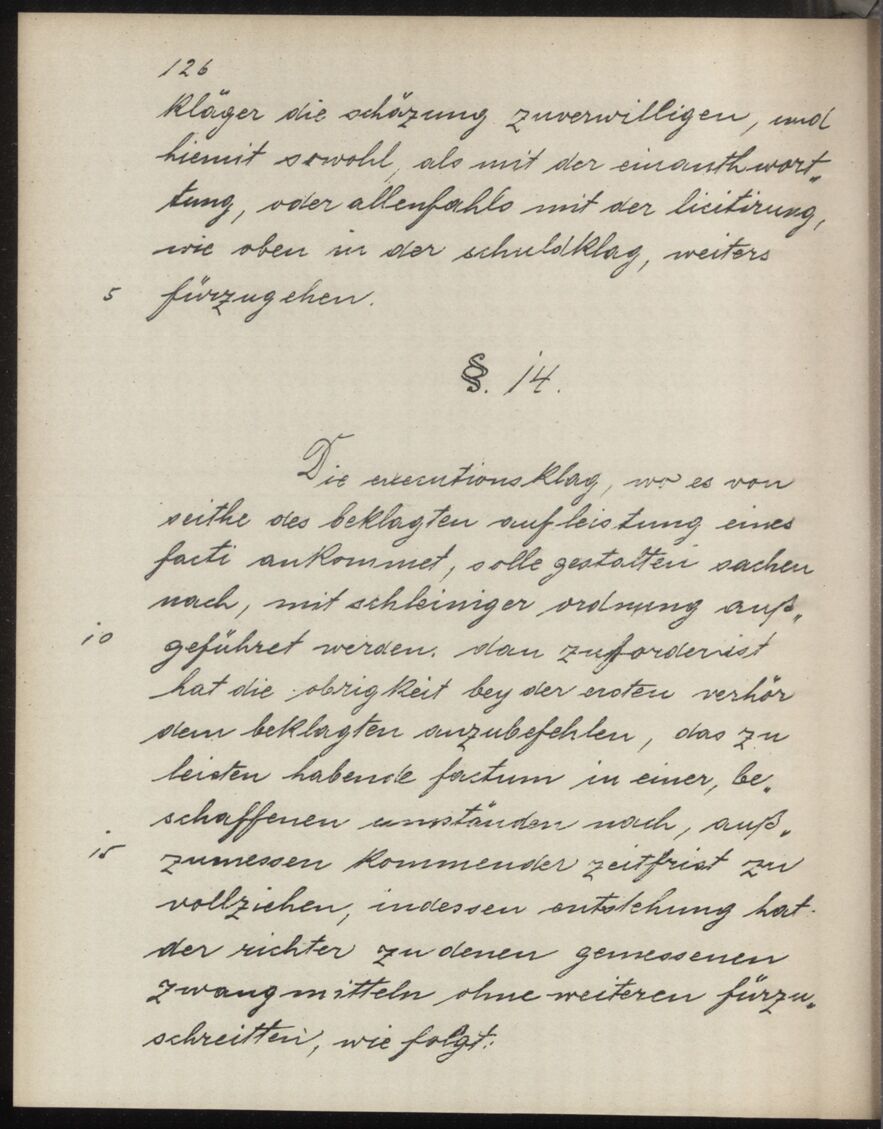 126
kläger die schäzung zuverwilligen, und
hiemit sowohl, als mit der einanthwort„
tung, oder allenfahls mit der licitirung,
wie oben in der schuldklag, weiters
5 fürzugehen.
§. 14.
Die executionsklag, wo es von
seithe des beklagten auf leistung eines
facti ankommet, solle gestalten sachen
nach, mit schleiniger ordnung auß„
10 geführet werden. dan zuforderist
hat die obrigkeit bey der ersten verhör
dem beklagten anzubefehlen, das zu
leisten habende factum in einer, be„
schaffenen umständen nach, auß„
15 zumessen kommender zeitfrist zu
vollziehen, in dessen entstehung hat
der richter zu denen gemessenen
zwangmitteln ohne weiteren fürzu„
schreitten, wie folgt: